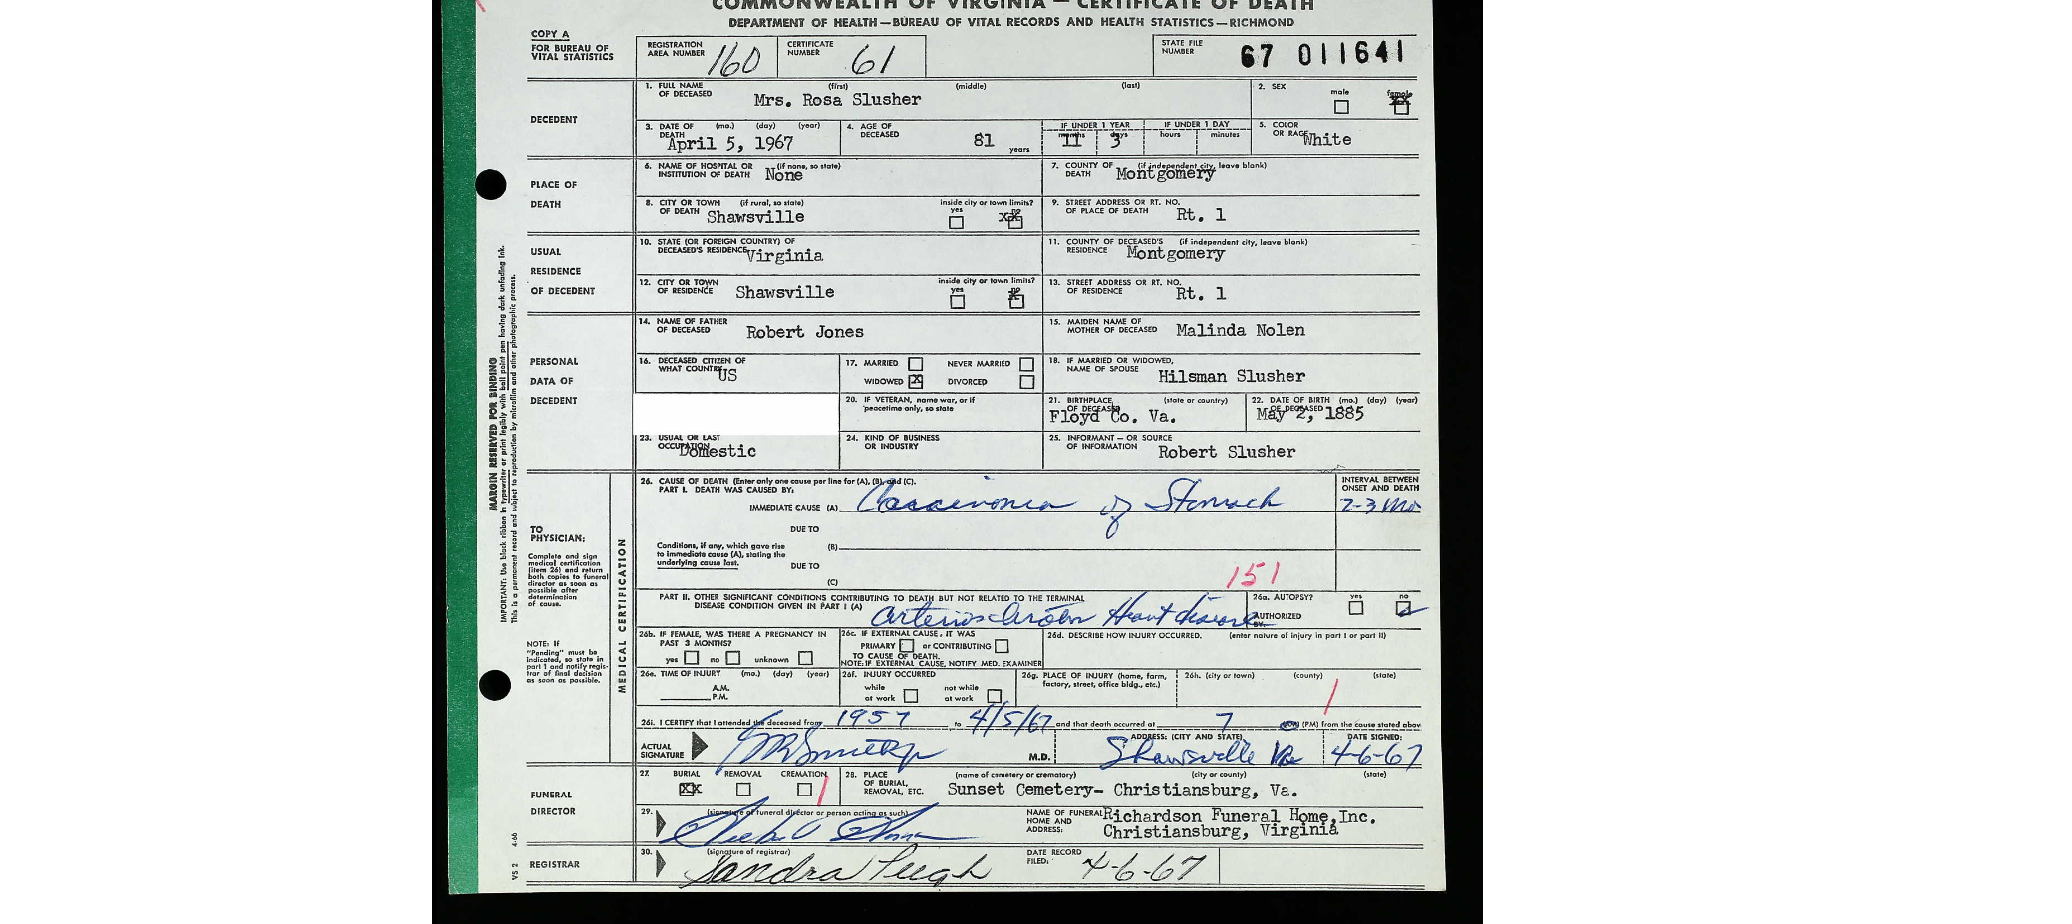 COMMONWEALTH OF VIRGINIA — CERTIFICATE OF DEATH
DEPARTMENT OF HEALTH—BUREAU OF VITAL RECORDS AND HEALTH STATISTICS—RICHMOND
COPY A
FOR BUREAU OF VITAL STATISTICS
REGISTRATION AREA NUMBER 160
CERTIFICATE NUMBER 61
STATE FILE NUMBER 67 011641
DECEDENT
1. FULL NAME OF DECEASED (first) (middle) (last) Mrs. Rosa Slusher
2. SEX male female XX
3. DATE OF DEATH (mo.) (day) (year) April 5, 1967
4. AGE OF DECEASED 81 years
IF UNDER 1 YEAR months 11 days 3
IF UNDER 1 DAY hours minutes
5. COLOR OR RACE White
PLACE OF DEATH
6. NAME OF HOSPITAL OR INSTITUTION OF DEATH (if none, so state) None
7. COUNTY OF DEATH (if independent city, leave blank) Montgomery
8. CITY OR TOWN OF DEATH (if rural, so state) Shawsville
inside city or town limits? yes no xx
9. STREET ADDRESS OR RT. NO. OF PLACE OF DEATH Rt. 1
USUAL RESIDENCE OF DECEDENT
10. STATE (OR FOREIGN COUNTRY) OF DECEASED'S RESIDENCE Virginia
11. COUNTY OF DECEASED'S RESIDENCE (if independent city, leave blank) Montgomery
12. CITY OR TOWN OF RESIDENCE Shawsville
inside city or town limits? yes no x
13. STREET ADDRESS OR RT. NO. OF RESIDENCE Rt. 1
PERSONAL DATA OF DECEDENT
14. NAME OF FATHER OF DECEASED Robert Jones
15. MAIDEN NAME OF MOTHER OF DECEASED Malinda Nolen
16. DECEASED CITIZEN OF WHAT COUNTRY US
17. MARRIED NEVER MARRIED
WIDOWED X DIVORCED
18. IF MARRIED OR WIDOWED, NAME OF SPOUSE Hilsman Slusher
20. IF VETERAN, name war, or if peacetime only, so state
21. BIRTHPLACE OF DECEASED (state or country) Floyd Co. Va.
22. DATE OF BIRTH OF DECEASED (mo.) (day) (year) May 2, 1885
23. USUAL OR LAST OCCUPATION Domestic
24. KIND OF BUSINESS OR INDUSTRY
25. INFORMANT — OR SOURCE OF INFORMATION Robert Slusher
MARGIN RESERVED FOR BINDING
IMPORTANT: Use black ribbon in typewriter or print legibly with ball point pen having dark unfading ink.
This is a permanent record and subject to reproduction by microfilm and other photographic process.
TO PHYSICIAN:
Complete and sign medical certification (item 26) and return both copies to funeral director as soon as possible after determination of cause.
NOTE: If "Pending" must be indicated, so state in part 1 and notify registrar of final decision as soon as possible.
MEDICAL CERTIFICATION
26. CAUSE OF DEATH (Enter only one cause per line for (A), (B), and (C).
PART I. DEATH WAS CAUSED BY:
IMMEDIATE CAUSE (A) Carcinoma of Stomach
INTERVAL BETWEEN ONSET AND DEATH
2-3 Mo
DUE TO
Conditions, if any, which gave rise to immediate cause (A), stating the underlying cause last.
(B)
DUE TO
(C)
151
PART II. OTHER SIGNIFICANT CONDITIONS CONTRIBUTING TO DEATH BUT NOT RELATED TO THE TERMINAL
DISEASE CONDITION GIVEN IN PART I (A) Arteriosclerotic Heart disease
26a. AUTOPSY? yes no
AUTHORIZED BY:
26b. IF FEMALE, WAS THERE A PREGNANCY IN PAST 3 MONTHS?
yes no unknown
26c. IF EXTERNAL CAUSE, IT WAS
PRIMARY or CONTRIBUTING
TO CAUSE OF DEATH.
NOTE: IF EXTERNAL CAUSE, NOTIFY MED. EXAMINER
26d. DESCRIBE HOW INJURY OCCURRED. (enter nature of injury in part I or part II)
26e. TIME OF INJURY (mo.) (day) (year)
A.M.
P.M.
26f. INJURY OCCURRED
while at work not while at work
26g. PLACE OF INJURY (home, farm, factory, street, office bldg., etc.)
26h. (city or town) (county) (state)
26i. I CERTIFY that I attended the deceased from 1957 to 4/5/67 and that death occurred at 7 (PM) from the cause stated above
ACTUAL SIGNATURE M.D.
ADDRESS: (CITY AND STATE) Shawsville Va
DATE SIGNED: 4-6-67
FUNERAL DIRECTOR
27. BURIAL XX REMOVAL CREMATION
28. PLACE OF BURIAL, REMOVAL, ETC. (name of cemetery or crematory) (city or county) (state)
Sunset Cemetery- Christiansburg, Va.
29. (signature of funeral director or person acting as such)
NAME OF FUNERAL HOME AND ADDRESS: Richardson Funeral Home, Inc.
Christiansburg, Virginia
REGISTRAR
30. (signature of registrar) Sandra Peegh
DATE RECORD FILED: 4-6-67
VS 2 4-66